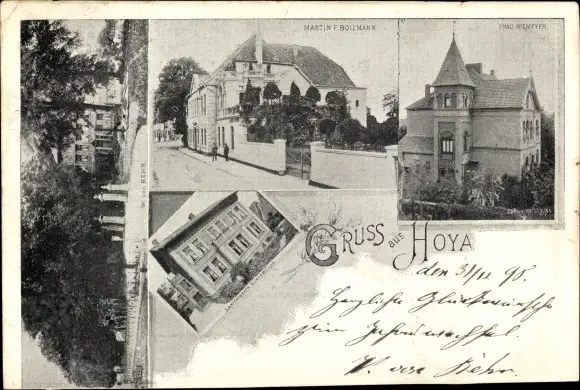 MARTIN F. BOLLMANN
FRAU NIEMEYER
W. von BEHR.
GRUSS aus HOYA
den 31/12 98.
Herzliche Glückwünsche
zum Jahreswechsel.
W. von Behr.